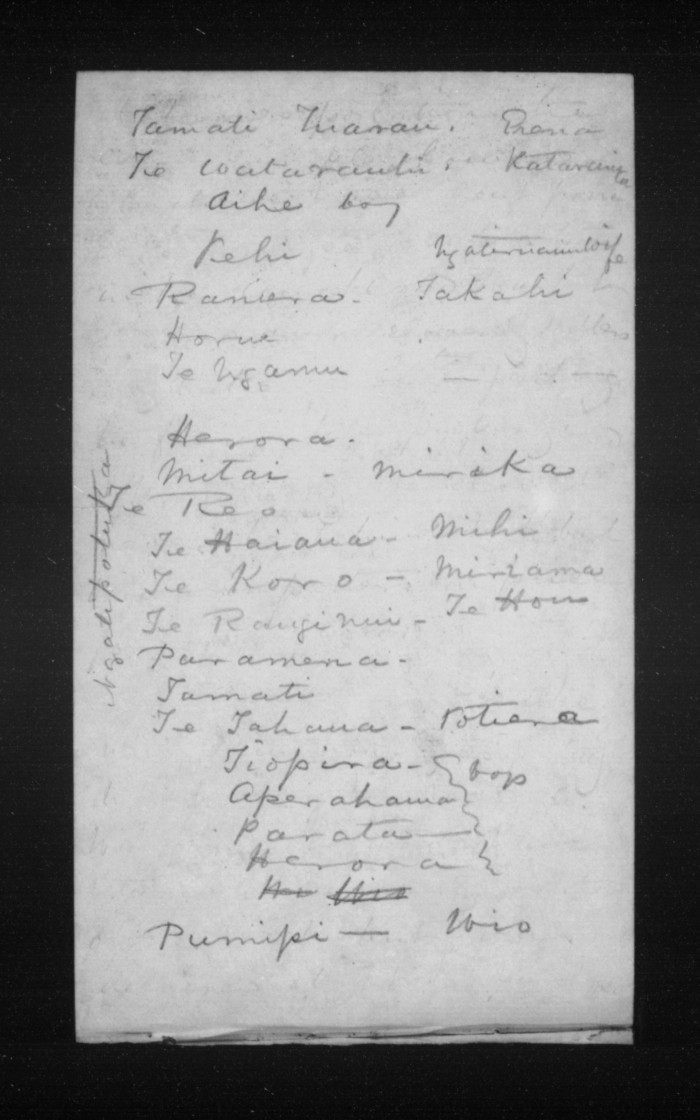 Tamati Tharau. Erena
Te Watarauhi. Katarina
Aihe boy
Pehi wife
Raniera. Takahi
Horue
Te Ngamu
Herora.
Mitai - Mirika
Te Reo
Te Haiana - Mihi
Te Koro - Miriama
Te Rangi Nui - Te Hou
Paramena.
Tamati
Te Tahana - Potiera
Tiopira - boys
Aperahama
Parata
Herora
Pumipi - Wio
Ngatipotukza